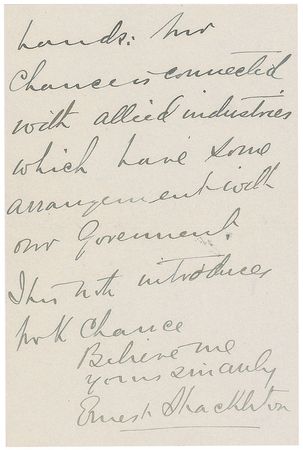 hands: Mr
Chance is connected
with allied industries
which have some
arrangement with
our Goverment.
This note introduces
Mr K Chance
Believe me
yours sincerely
Ernest Shackleton